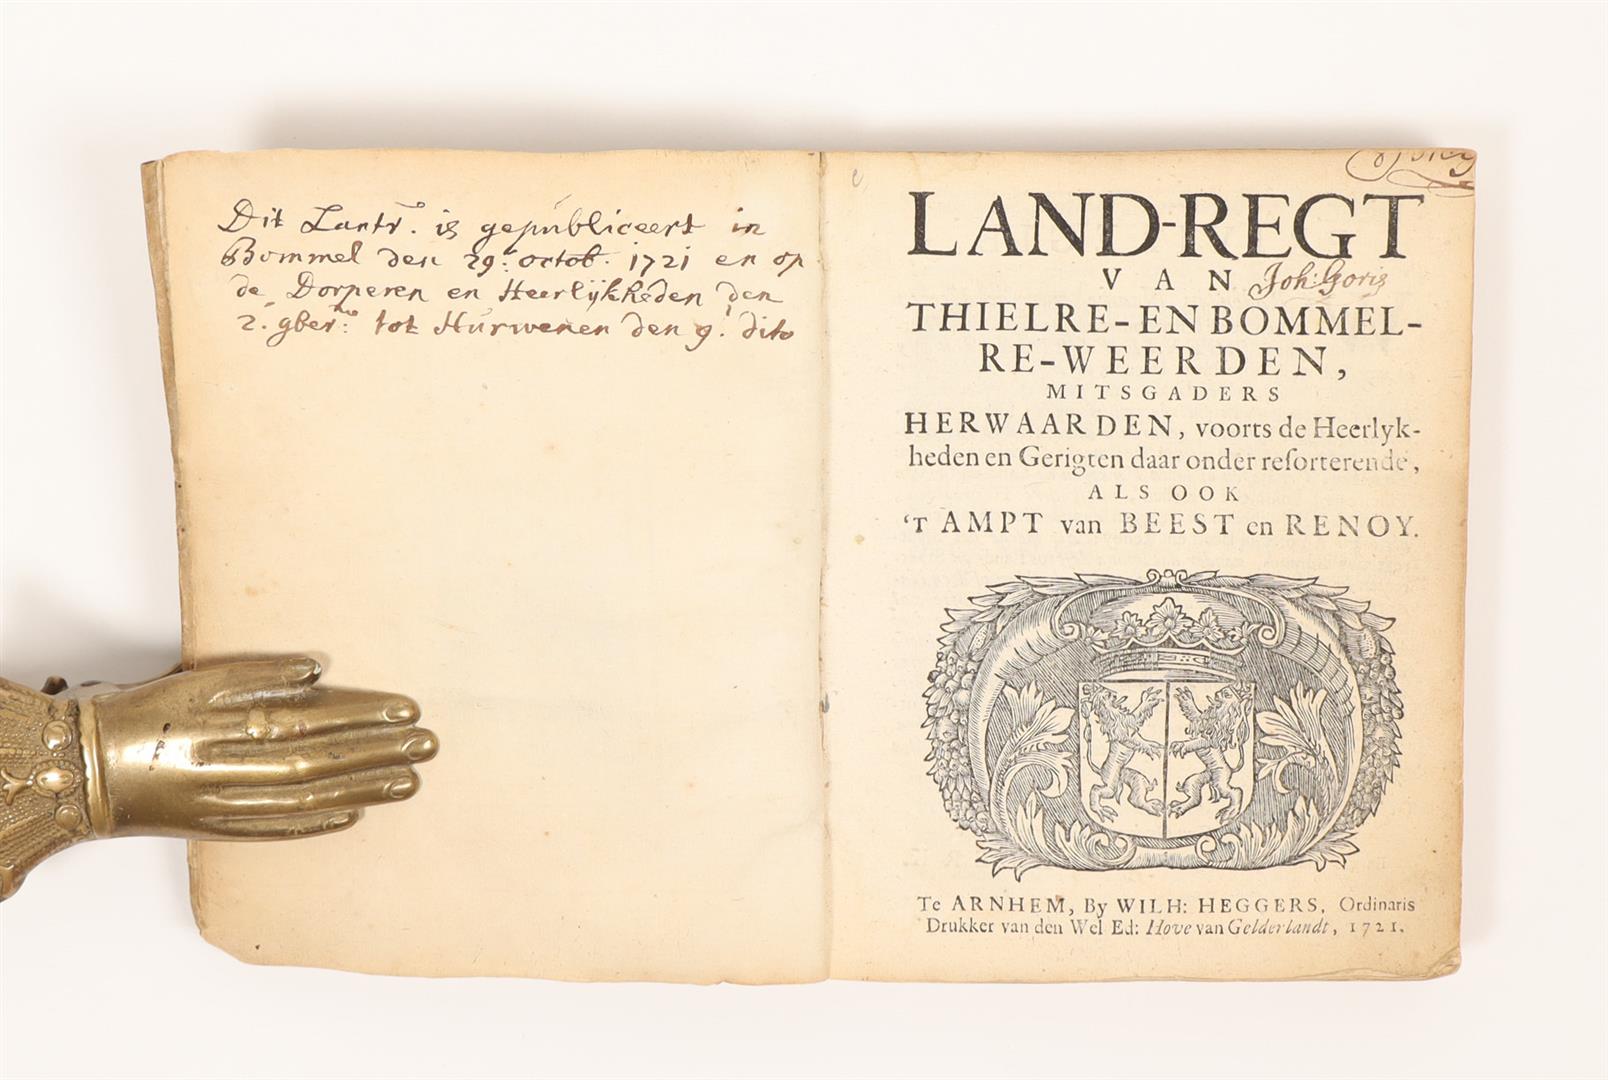 Dit Lantr.^o is gepubliceert in
Bommel den 29.^e octob. 1721 en op
de Dorperen en Heerlijkheden den
2.^e 9ber.^ tot Hurwenen den 9.^e dito
LAND-REGT
VAN Joh: Goris
THIELRE- EN BOMMEL-
RE-WEERDEN,
MITSGADERS
HERWAARDEN, voorts de Heerlyk-
heden en Gerigten daar onder reſorterende,
ALS OOK
'T AMPT van BEEST en RENOY.
Te ARNHEM, By WILH: HEGGERS, Ordinaris
Drukker van den Wel Ed: Hove van Gelderlandt, 1721.